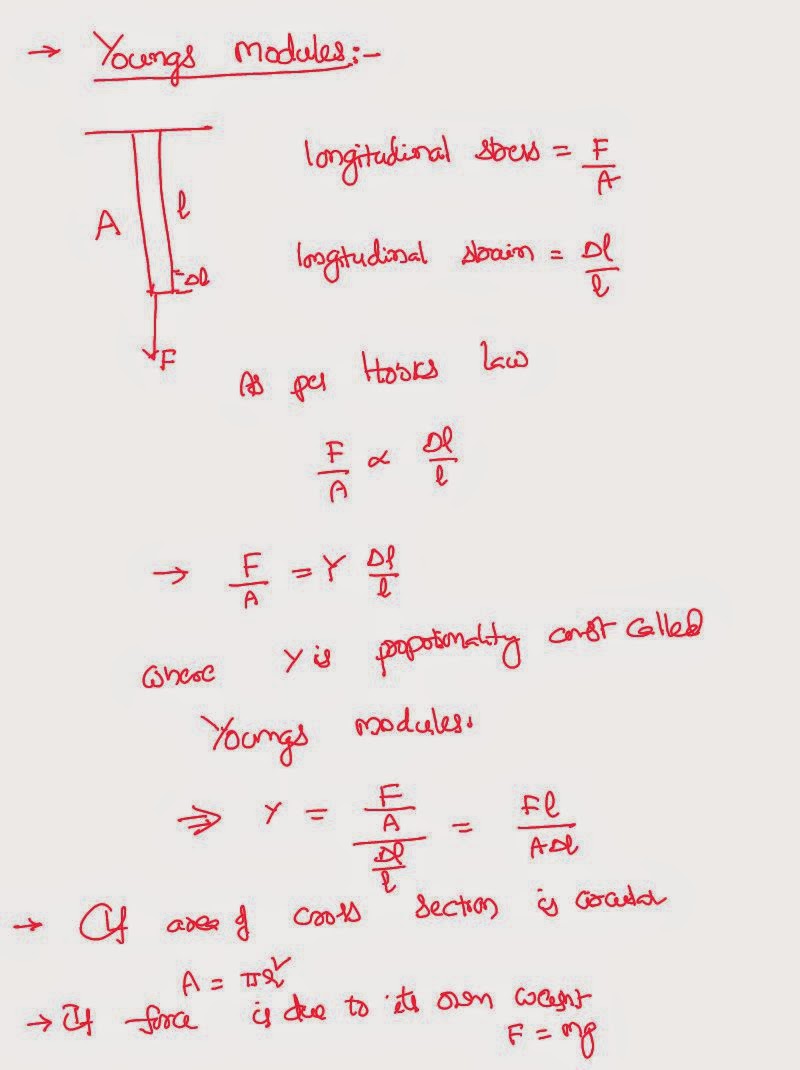 → Youngs modules:-
longitudional stress = F/A
A l
longitudinal strain = Δl/l
Δl
F
As per Hooks law
F/A ∝ Δl/l
→ F/A = Y Δl/l
where Y is propotionality const called
Youngs modules.
⇒ Y = (F/A)/(Δl/l) = Fl/AΔl
→ If area of cross section is circular
A = πr²
→ If force is due to its own weight
F = mg